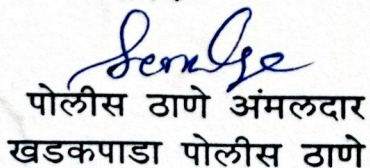 पोलीस ठाणे अंमलदार
खडकपाडा पोलीस ठाणे